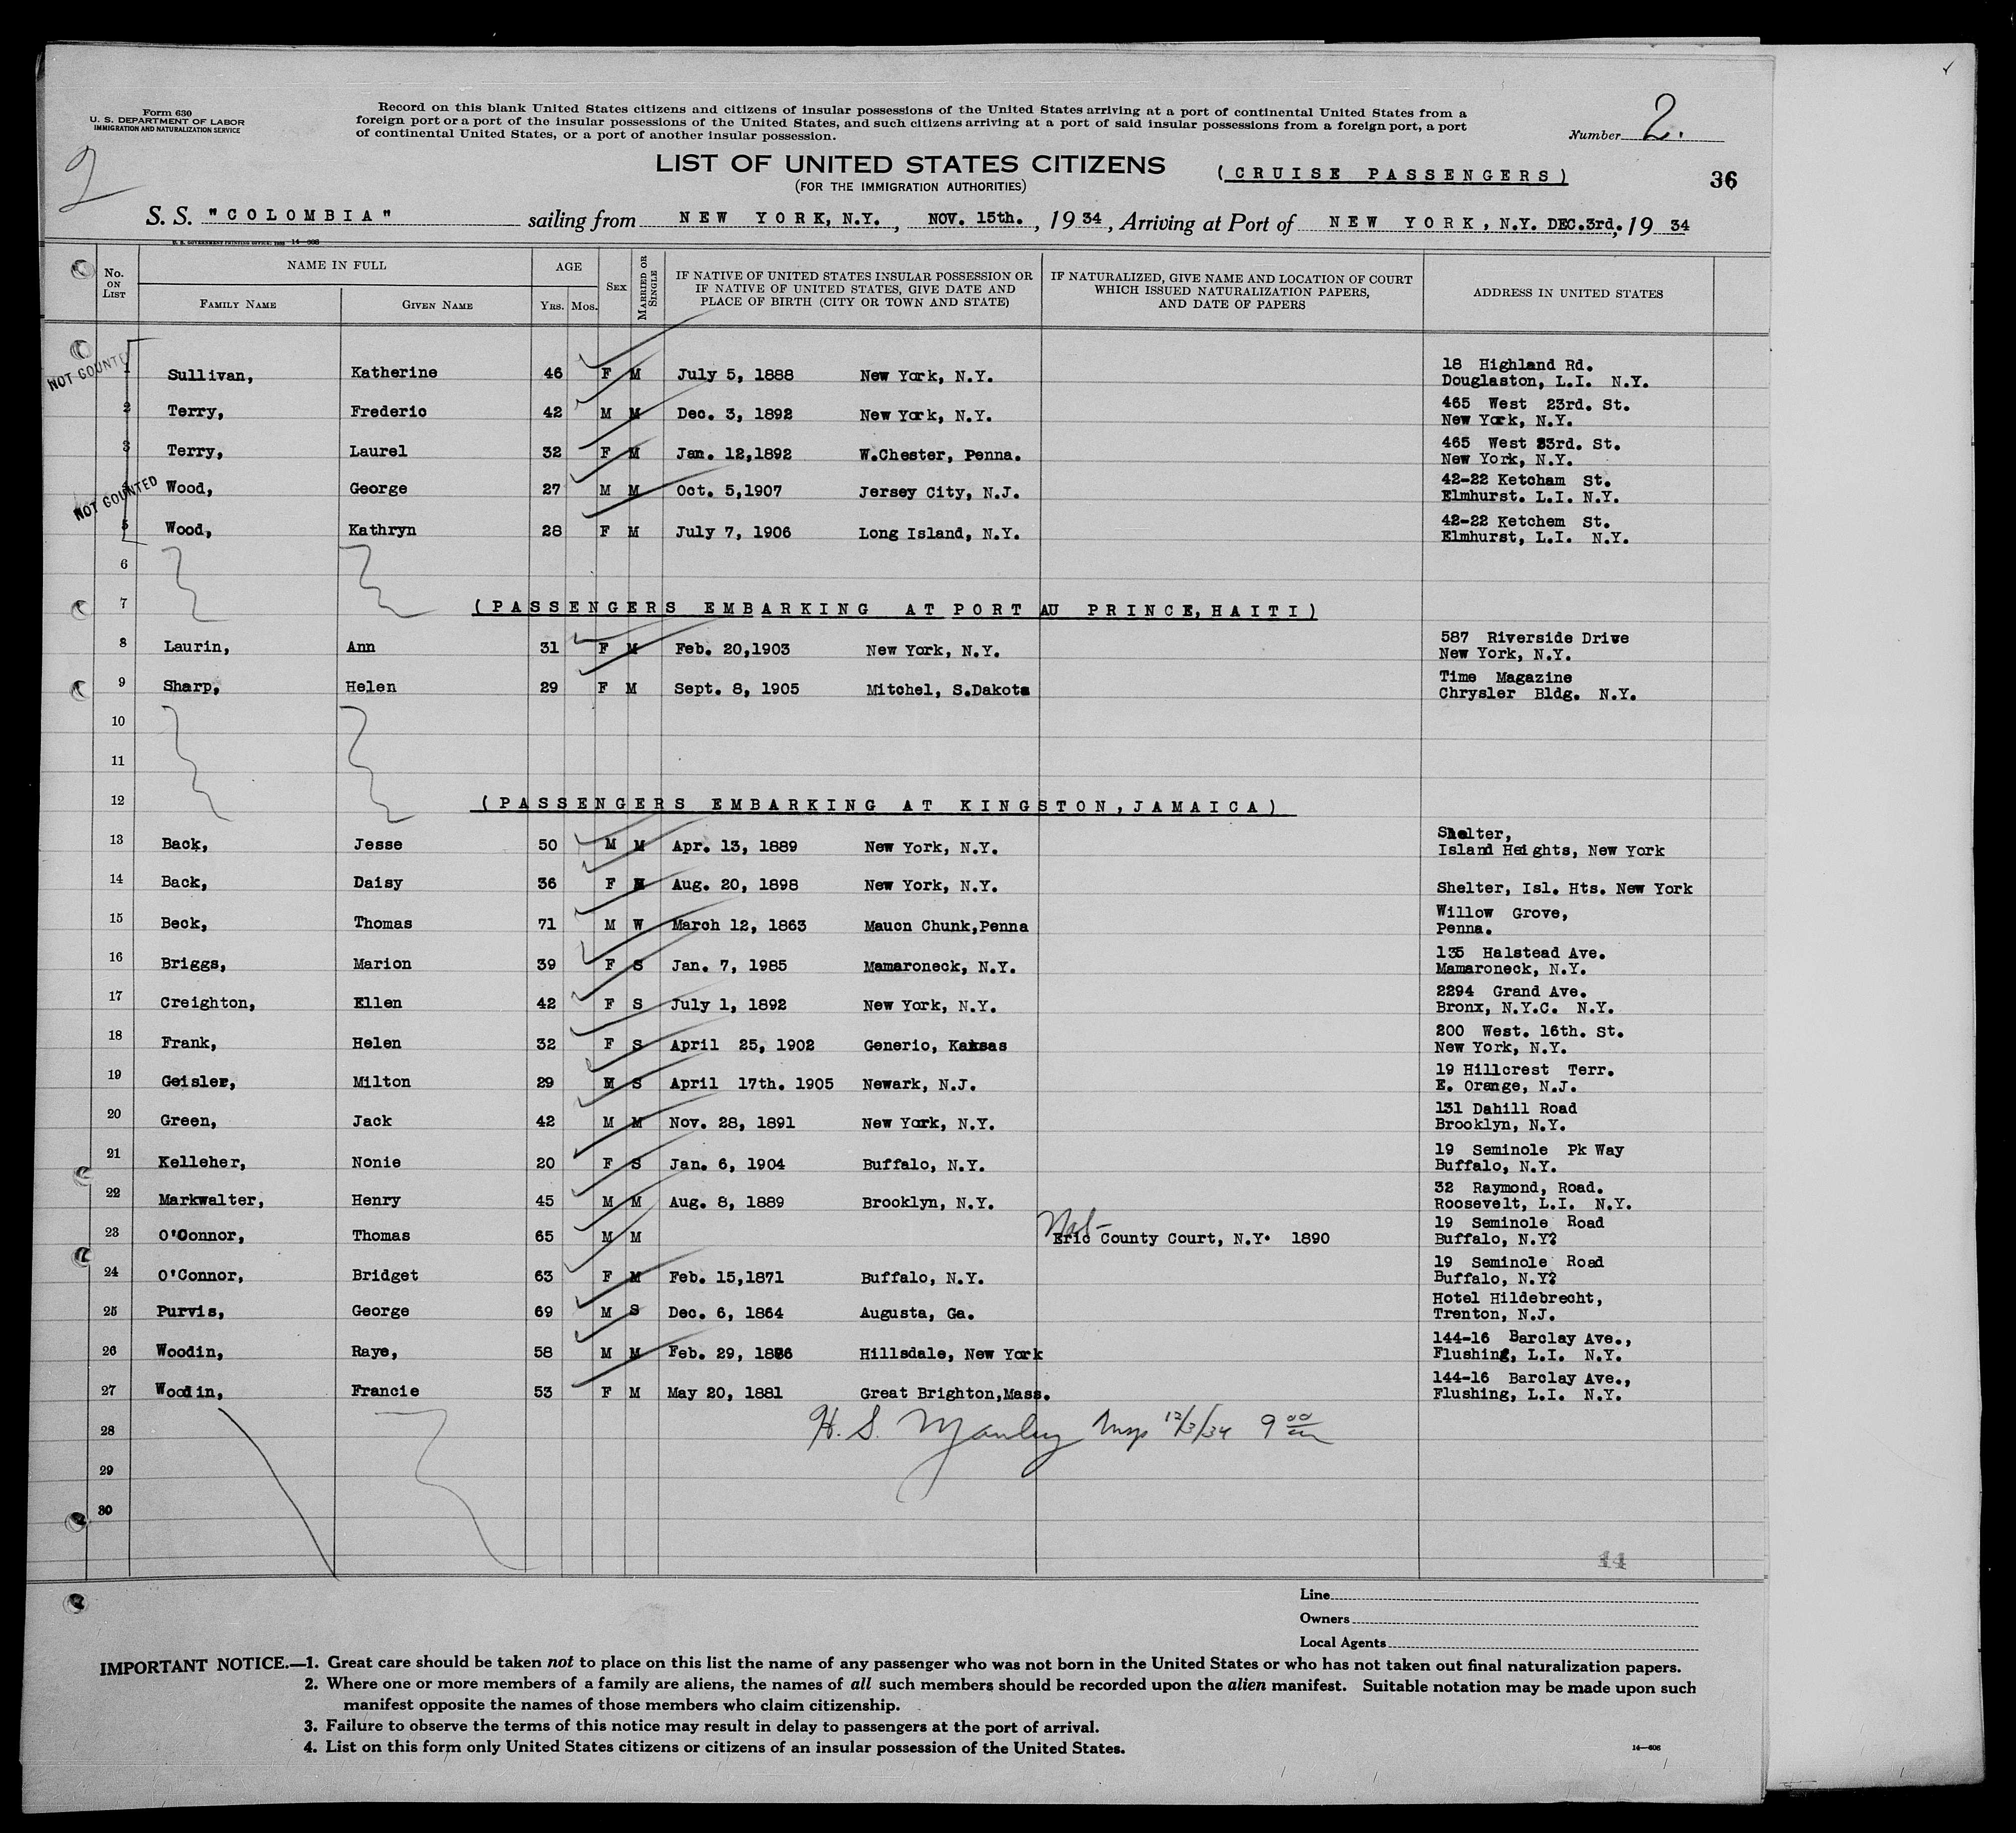 Form 630
U. S. DEPARTMENT OF LABOR
IMMIGRATION AND NATURALIZATION SERVICE
Record on this blank United States citizens and citizens of insular possessions of the United States arriving at a port of continental United States from a
foreign port or a port of the insular possessions of the United States, and such citizens arriving at a port of said insular possessions from a foreign port, a port
of continental United States, or a port of another insular possession.
Number 2.
2
LIST OF UNITED STATES CITIZENS (CRUISE PASSENGERS)
(FOR THE IMMIGRATION AUTHORITIES)
36
S. S. "COLOMBIA" sailing from NEW YORK, N.Y., NOV. 15th., 19 34, Arriving at Port of NEW YORK, N.Y. DEC.3rd., 19 34
No. ON LIST
NAME IN FULL
FAMILY NAME GIVEN NAME
AGE
Yrs. Mos.
SEX
MARRIED OR SINGLE
IF NATIVE OF UNITED STATES INSULAR POSSESSION OR
IF NATIVE OF UNITED STATES, GIVE DATE AND
PLACE OF BIRTH (CITY OR TOWN AND STATE)
IF NATURALIZED, GIVE NAME AND LOCATION OF COURT
WHICH ISSUED NATURALIZATION PAPERS,
AND DATE OF PAPERS
ADDRESS IN UNITED STATES
NOT COUNTED
1 Sullivan, Katherine 46 F M July 5, 1888 New York, N.Y. 18 Highland Rd.
Douglaston, L.I. N.Y.
2 Terry, Frederic 42 M M Dec. 3, 1892 New York, N.Y. 465 West 23rd. St.
New York, N.Y.
3 Terry, Laurel 32 F M Jan. 12,1892 W.Chester, Penna. 465 West 23rd. St.
New York, N.Y.
NOT COUNTED
4 Wood, George 27 M M Oct. 5,1907 Jersey City, N.J. 42-22 Ketcham St.
Elmhurst. L.I. N.Y.
5 Wood, Kathryn 28 F M July 7, 1906 Long Island, N.Y. 42-22 Ketchem St.
Elmhurst, L.I. N.Y.
6
7 (PASSENGERS EMBARKING AT PORT AU PRINCE, HAITI)
8 Laurin, Ann 31 F M Feb. 20,1903 New York, N.Y. 587 Riverside Drive
New York, N.Y.
9 Sharp, Helen 29 F M Sept. 8, 1905 Mitchel, S.Dakota Time Magazine
Chrysler Bldg. N.Y.
10
11
12 (PASSENGERS EMBARKING AT KINGSTON, JAMAICA)
13 Back, Jesse 50 M M Apr. 13, 1889 New York, N.Y. Shelter,
Island Heights, New York
14 Back, Daisy 36 F M Aug. 20, 1898 New York, N.Y. Shelter, Isl. Hts. New York
15 Beck, Thomas 71 M W March 12, 1863 Maucn Chunk,Penna Willow Grove,
Penna.
16 Briggs, Marion 39 F S Jan. 7, 1985 Mamaroneck, N.Y. 135 Halstead Ave.
Mamaroneck, N.Y.
17 Creighton, Ellen 42 F S July 1, 1892 New York, N.Y. 2294 Grand Ave.
Bronx, N.Y.C. N.Y.
18 Frank, Helen 32 F S April 25, 1902 Generio, Kaksas 200 West. 16th. St.
New York, N.Y.
19 Geisler, Milton 29 M S April 17th. 1905 Newark, N.J. 19 Hillcrest Terr.
E. Orange, N.J.
20 Green, Jack 42 M M Nov. 28, 1891 New York, N.Y. 131 Dahill Road
Brooklyn, N.Y.
21 Kelleher, Nonie 20 F S Jan. 6, 1904 Buffalo, N.Y. 19 Seminole Pk Way
Buffalo, N.Y.
22 Markwalter, Henry 45 M M Aug. 8, 1889 Brooklyn, N.Y. 32 Raymond, Road.
Roosevelt, L.I. N.Y.
23 O'Connor, Thomas 65 M M Eric County Court, N.Y. 1890 19 Seminole Road
Buffalo, N.Y?
24 O'Connor, Bridget 63 F M Feb. 15,1871 Buffalo, N.Y. 19 Seminole Road
Buffalo, N.Y?
25 Purvis, George 69 M S Dec. 6, 1864 Augusta, Ga. Hotel Hildebrecht,
Trenton, N.J.
26 Woodin, Raye, 58 M M Feb. 29, 1876 Hillsdale, New York 144-16 Barclay Ave.,
Flushing, L.I. N.Y.
27 Woodin, Francie 53 F M May 20, 1881 Great Brighton,Mass. 144-16 Barclay Ave.,
Flushing, L.I. N.Y.
28 H. S. Manley Insp 12/3/34 9 00 am
29
30
44
Line
Owners
Local Agents
IMPORTANT NOTICE.—1. Great care should be taken not to place on this list the name of any passenger who was not born in the United States or who has not taken out final naturalization papers.
2. Where one or more members of a family are aliens, the names of all such members should be recorded upon the alien manifest. Suitable notation may be made upon such
manifest opposite the names of those members who claim citizenship.
3. Failure to observe the terms of this notice may result in delay to passengers at the port of arrival.
4. List on this form only United States citizens or citizens of an insular possession of the United States.
14—606